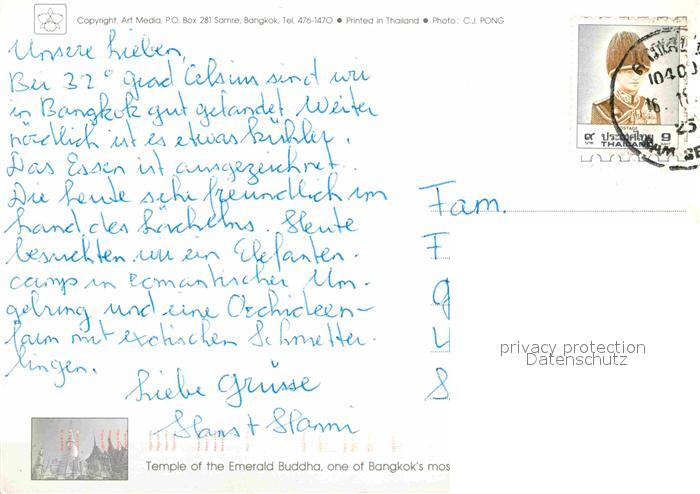 Copyright, Art Media, P.O. Box 281 Samre, Bangkok, Tel. 476-1470 ● Printed in Thailand ● Photo: C.J. PONG
Unsere Lieben,
Bei 32° grad Celsius sind wir
in Bangkok gut gelandet. Weiter
nördlich ist es etwas kühler.
Das Essen ist ausgezeichnet.
Die Leute sehr freundlich im
Land des Lächelns. Heute
besuchten wir ein Elefanten-
camp in romantischer Um-
gebung und eine Orchideen-
farm mit exotischen Schmetter-
lingen.
Liebe Grüsse
Hans + Hanni
POSTAGE
๙ ประเทศไทย 9
บาท THAILAND
10400
Fam.
privacy protection
Datenschutz
Temple of the Emerald Buddha, one of Bangkok's mos